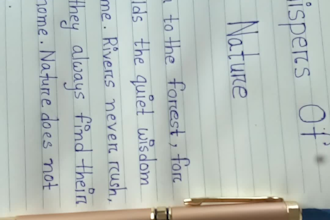 ispers Of
Nature
to the forest, for
lds the quiet wisdom
me. Rivers never rush,
they always find their
home. Nature does not